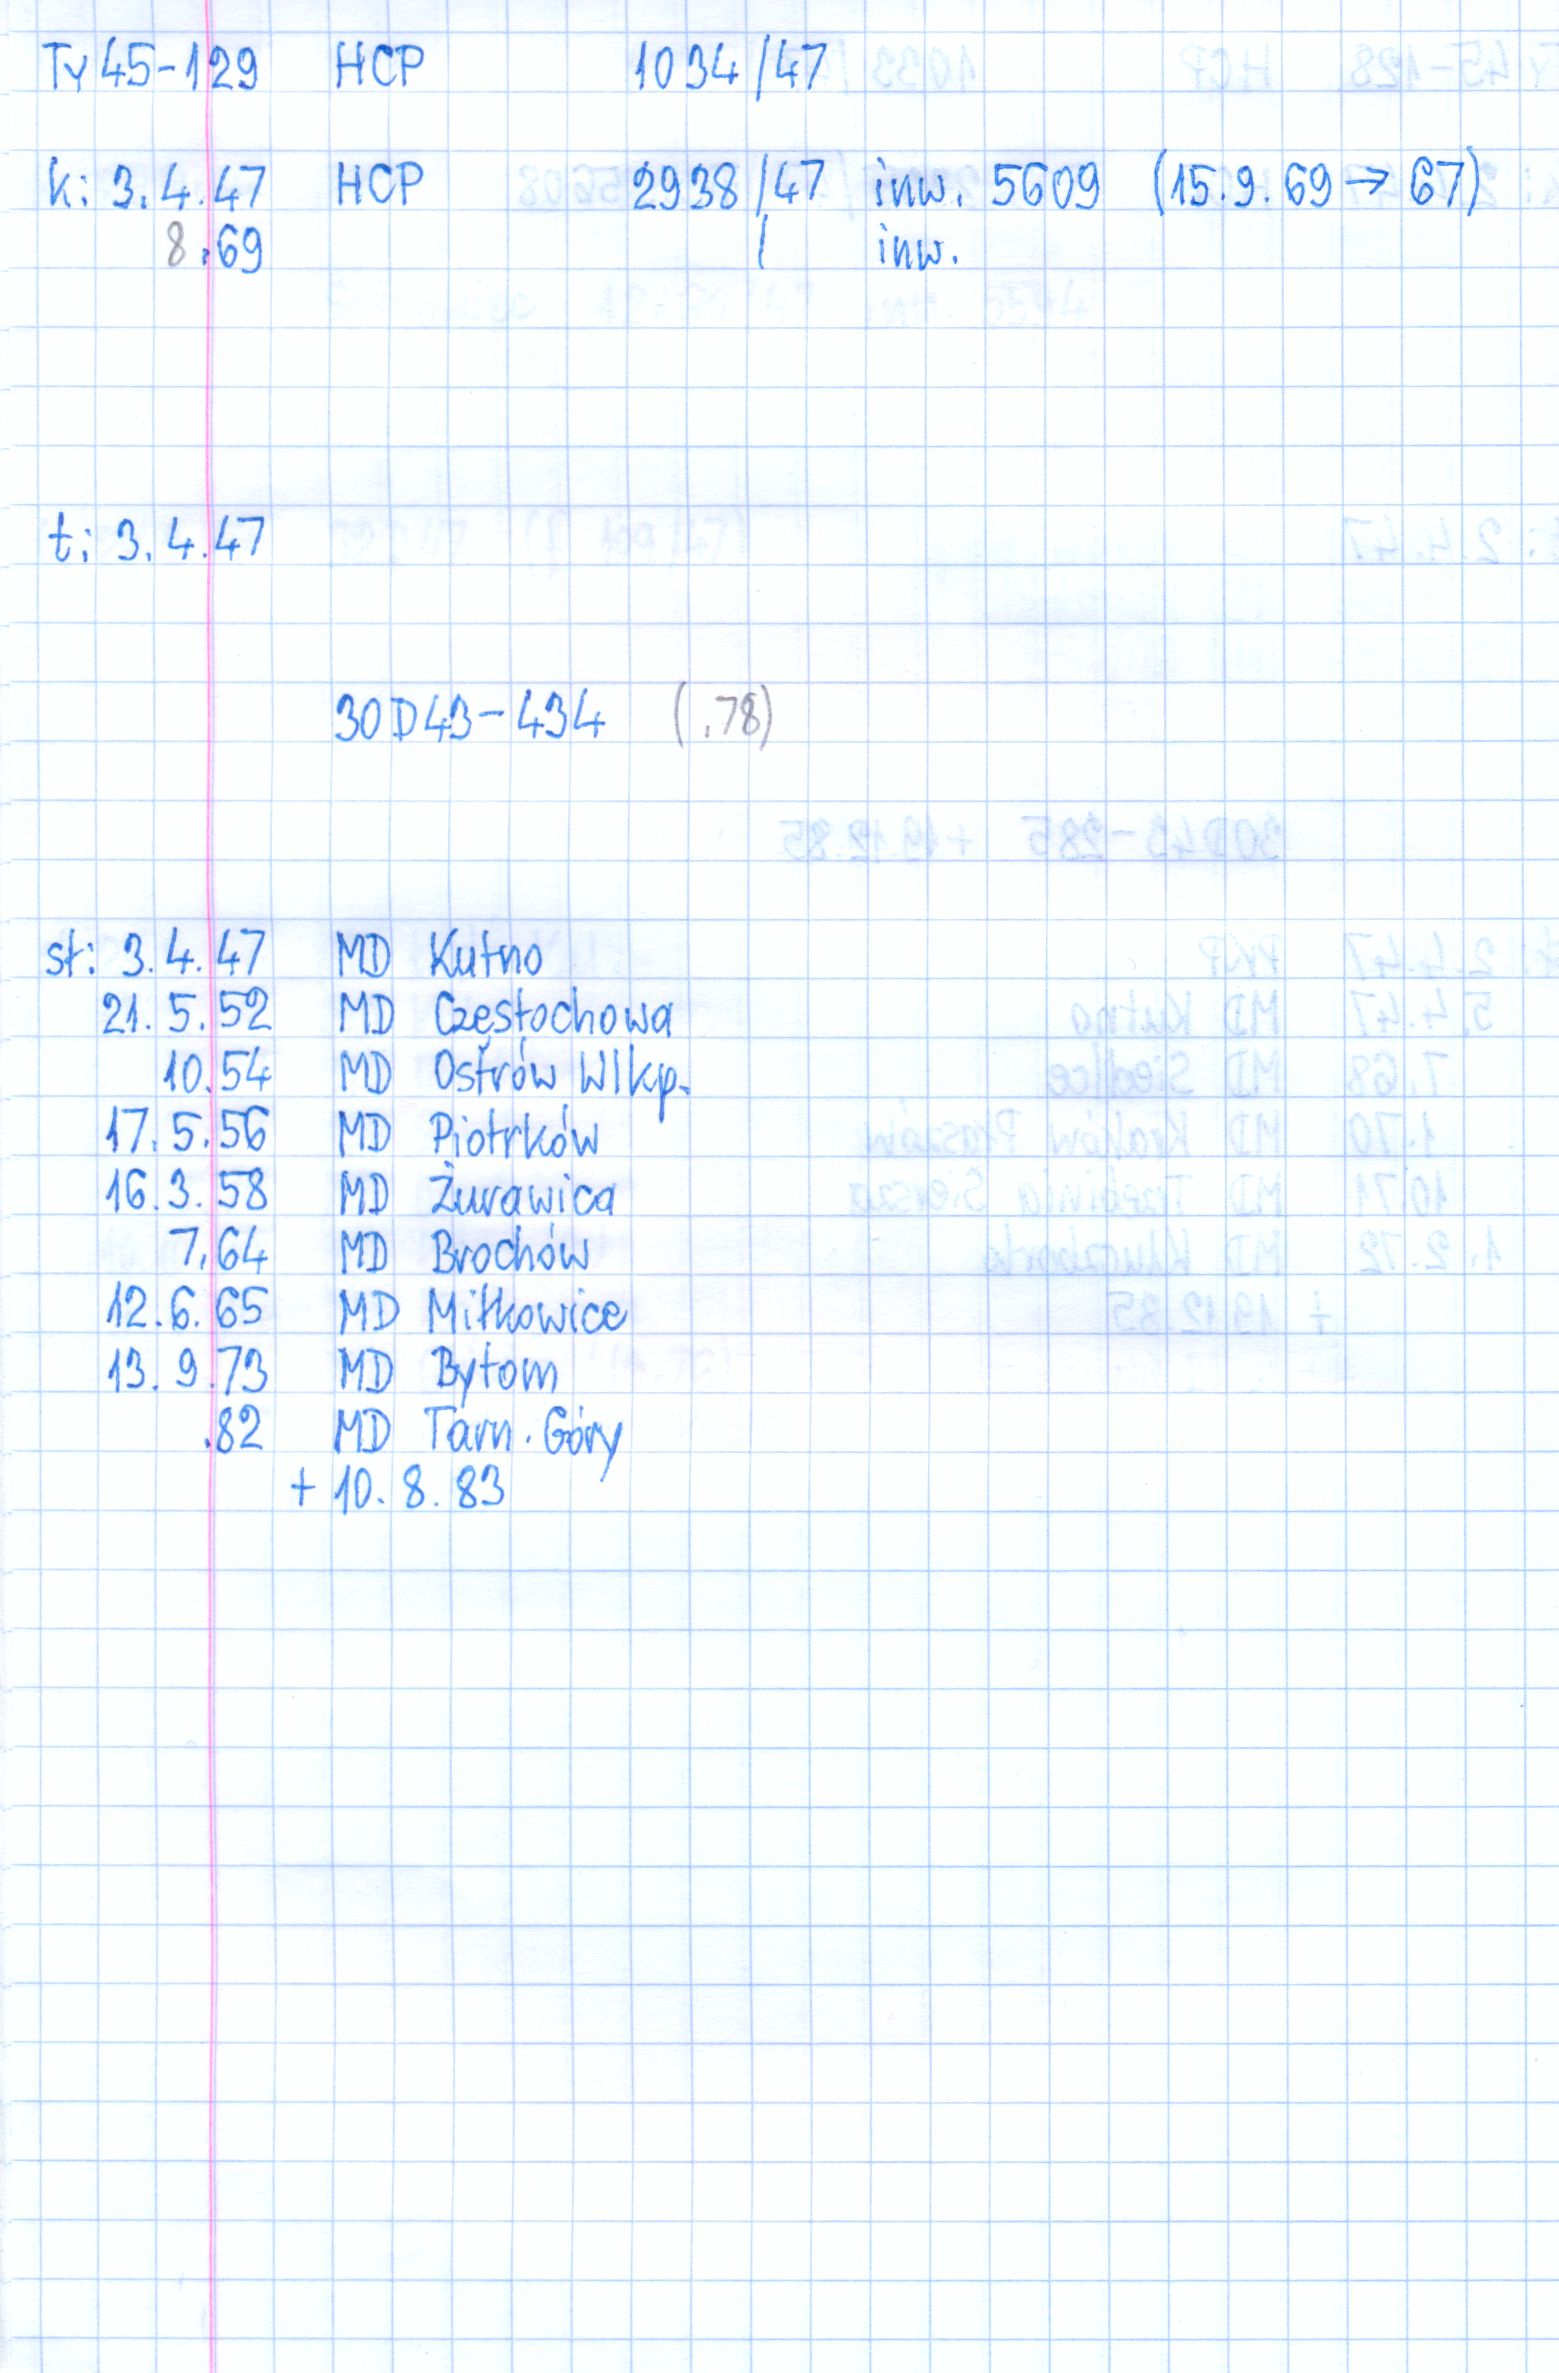 Ty45-129 HCP 1034/47
k: 3.4.47 HCP 2938/47 inw. 5609 (15.9.69 → 67)
8.69 / inw.
t: 3.4.47
30D43-434 (.78)
st: 3.4.47 MD Kutno
21.5.52 MD Częstochowa
10.54 MD Ostrów Wlkp.
17.5.56 MD Piotrków
16.3.58 MD Żurawica
7.64 MD Brochów
12.6.65 MD Miłkowice
13.9.73 MD Bytom
.82 MD Tarn. Góry
+ 10.8.83